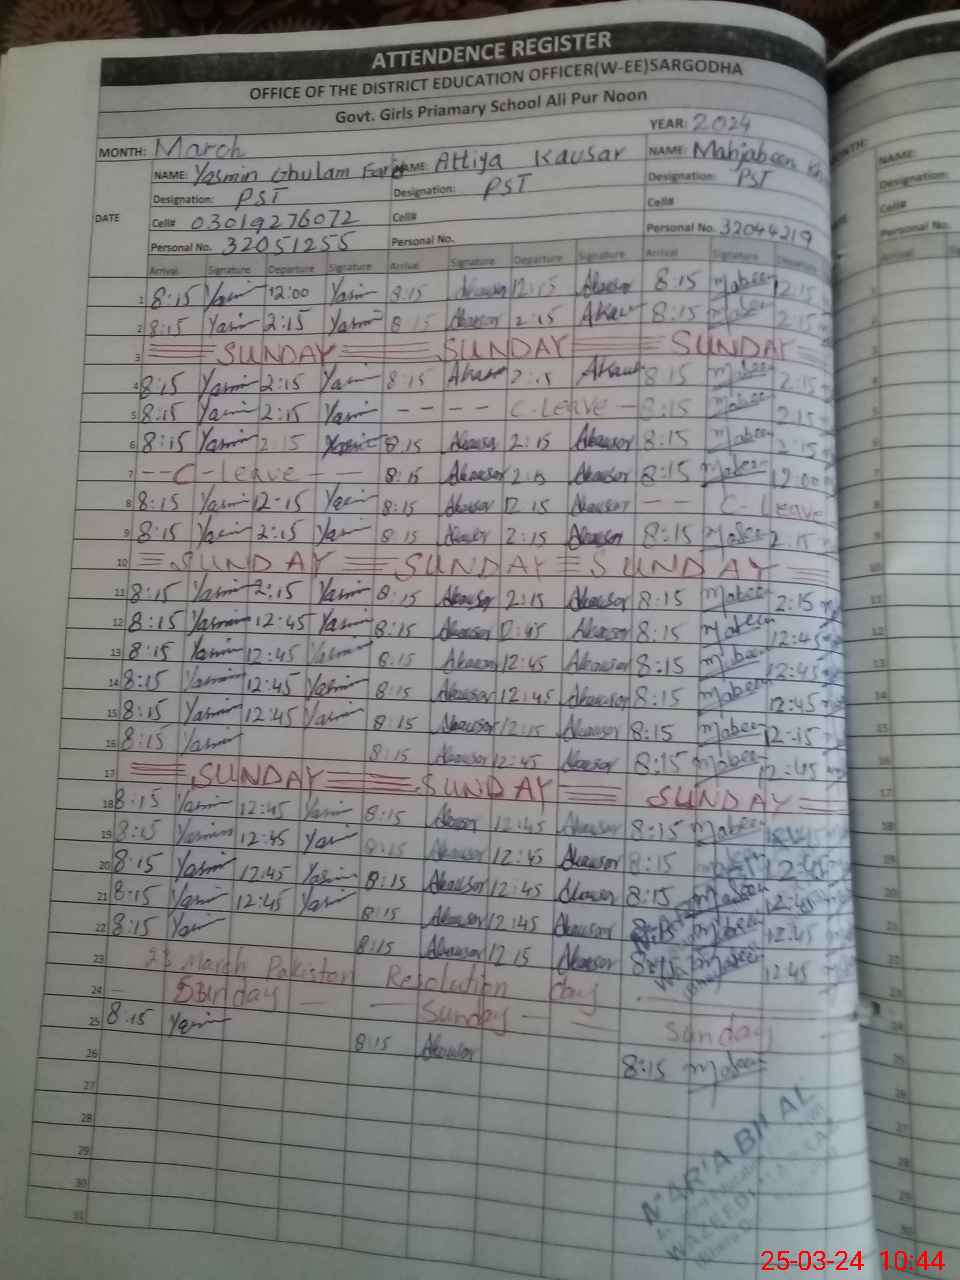 ATTENDENCE REGISTER
OFFICE OF THE DISTRICT EDUCATION OFFICER(W-EE)SARGODHA
Govt. Girls Priamary School Ali Pur Noon
MONTH: March YEAR: 2024
NAME: Yasmin Ghulam NAME: Attiya Kausar NAME: Mahjabeen
Designation: PST Designation: PST Designation: PST
DATE Cell# 03019276072 Cell# Cell#
Personal No. 32051255 Personal No. Personal No. 32044219
Arrival Signature Departure Signature Arrival Signature Departure Signature Arrival Signature Departure
1 8:15 Yasmin 12:00 Yasmin 8:15 Akausar 12:15 Akausar 8:15 Mabeen 12:15
2 8:15 Yasmin 2:15 Yasmin 8:15 Akausar 2:15 Akausar 8:15 Mabeen 2:15
3 SUNDAY SUNDAY SUNDAY
4 8:15 Yasmin 2:15 Yasmin 8:15 Akausar 2:15 Akausar 8:15 Mabeen 2:15
5 8:15 Yasmin 2:15 Yasmin - - - - C-Leave - 8:15 Mabeen 2:15
6 8:15 Yasmin 2:15 Yasmin 8:15 Akausar 2:15 Akausar 8:15 Mabeen 2:15
7 -- C-leave - - 8:15 Akausar 2:15 Akausar 8:15 Mabeen 12:00
8 8:15 Yasmin 12:15 Yasmin 8:15 Akausar 12:15 Akausar - - C-Leave
9 8:15 Yasmin 2:15 Yasmin 8:15 Akausar 2:15 Akausar 8:15 Mabeen 2:15
10 SUNDAY SUNDAY SUNDAY
11 8:15 Yasmin 2:15 Yasmin 8:15 Akausar 2:15 Akausar 8:15 Mabeen 2:15
12 8:15 Yasmin 12:45 Yasmin 8:15 Akausar 12:45 Akausar 8:15 Mabeen 12:45
13 8:15 Yasmin 12:45 Yasmin 8:15 Akausar 12:45 Akausar 8:15 Mabeen 12:45
14 8:15 Yasmin 12:45 Yasmin 8:15 Akausar 12:45 Akausar 8:15 Mabeen 12:45
15 8:15 Yasmin 12:45 Yasmin 8:15 Akausar 12:15 Akausar 8:15 Mabeen 12:15
16 8:15 Yasmin 8:15 Akausar 12:45 Akausar 8:15 Mabeen 12:45
17 SUNDAY SUNDAY SUNDAY
18 8:15 Yasmin 12:45 Yasmin 8:15 Akausar 12:45 Akausar 8:15 Mabeen 12:45
19 8:15 Yasmin 12:45 Yasmin 8:15 Akausar 12:45 Akausar 8:15 Mabeen 12:45
20 8:15 Yasmin 12:45 Yasmin 8:15 Akausar 12:45 Akausar 8:15 Mabeen 12:45
21 8:15 Yasmin 12:45 Yasmin 8:15 Akausar 12:45 Akausar 8:15 Mabeen 12:45
22 8:15 Yasmin 8:15 Akausar 12:15 Akausar 8:15 Mabeen 12:45
23 23 March Pakistan Resolution day
24 Sunday Sunday Sunday
25 8:15 Yasmin 8:15 Akausar 8:15 Mabeen
26
27
28
29
30
31
MARIA BILAL
25-03-24 10:44